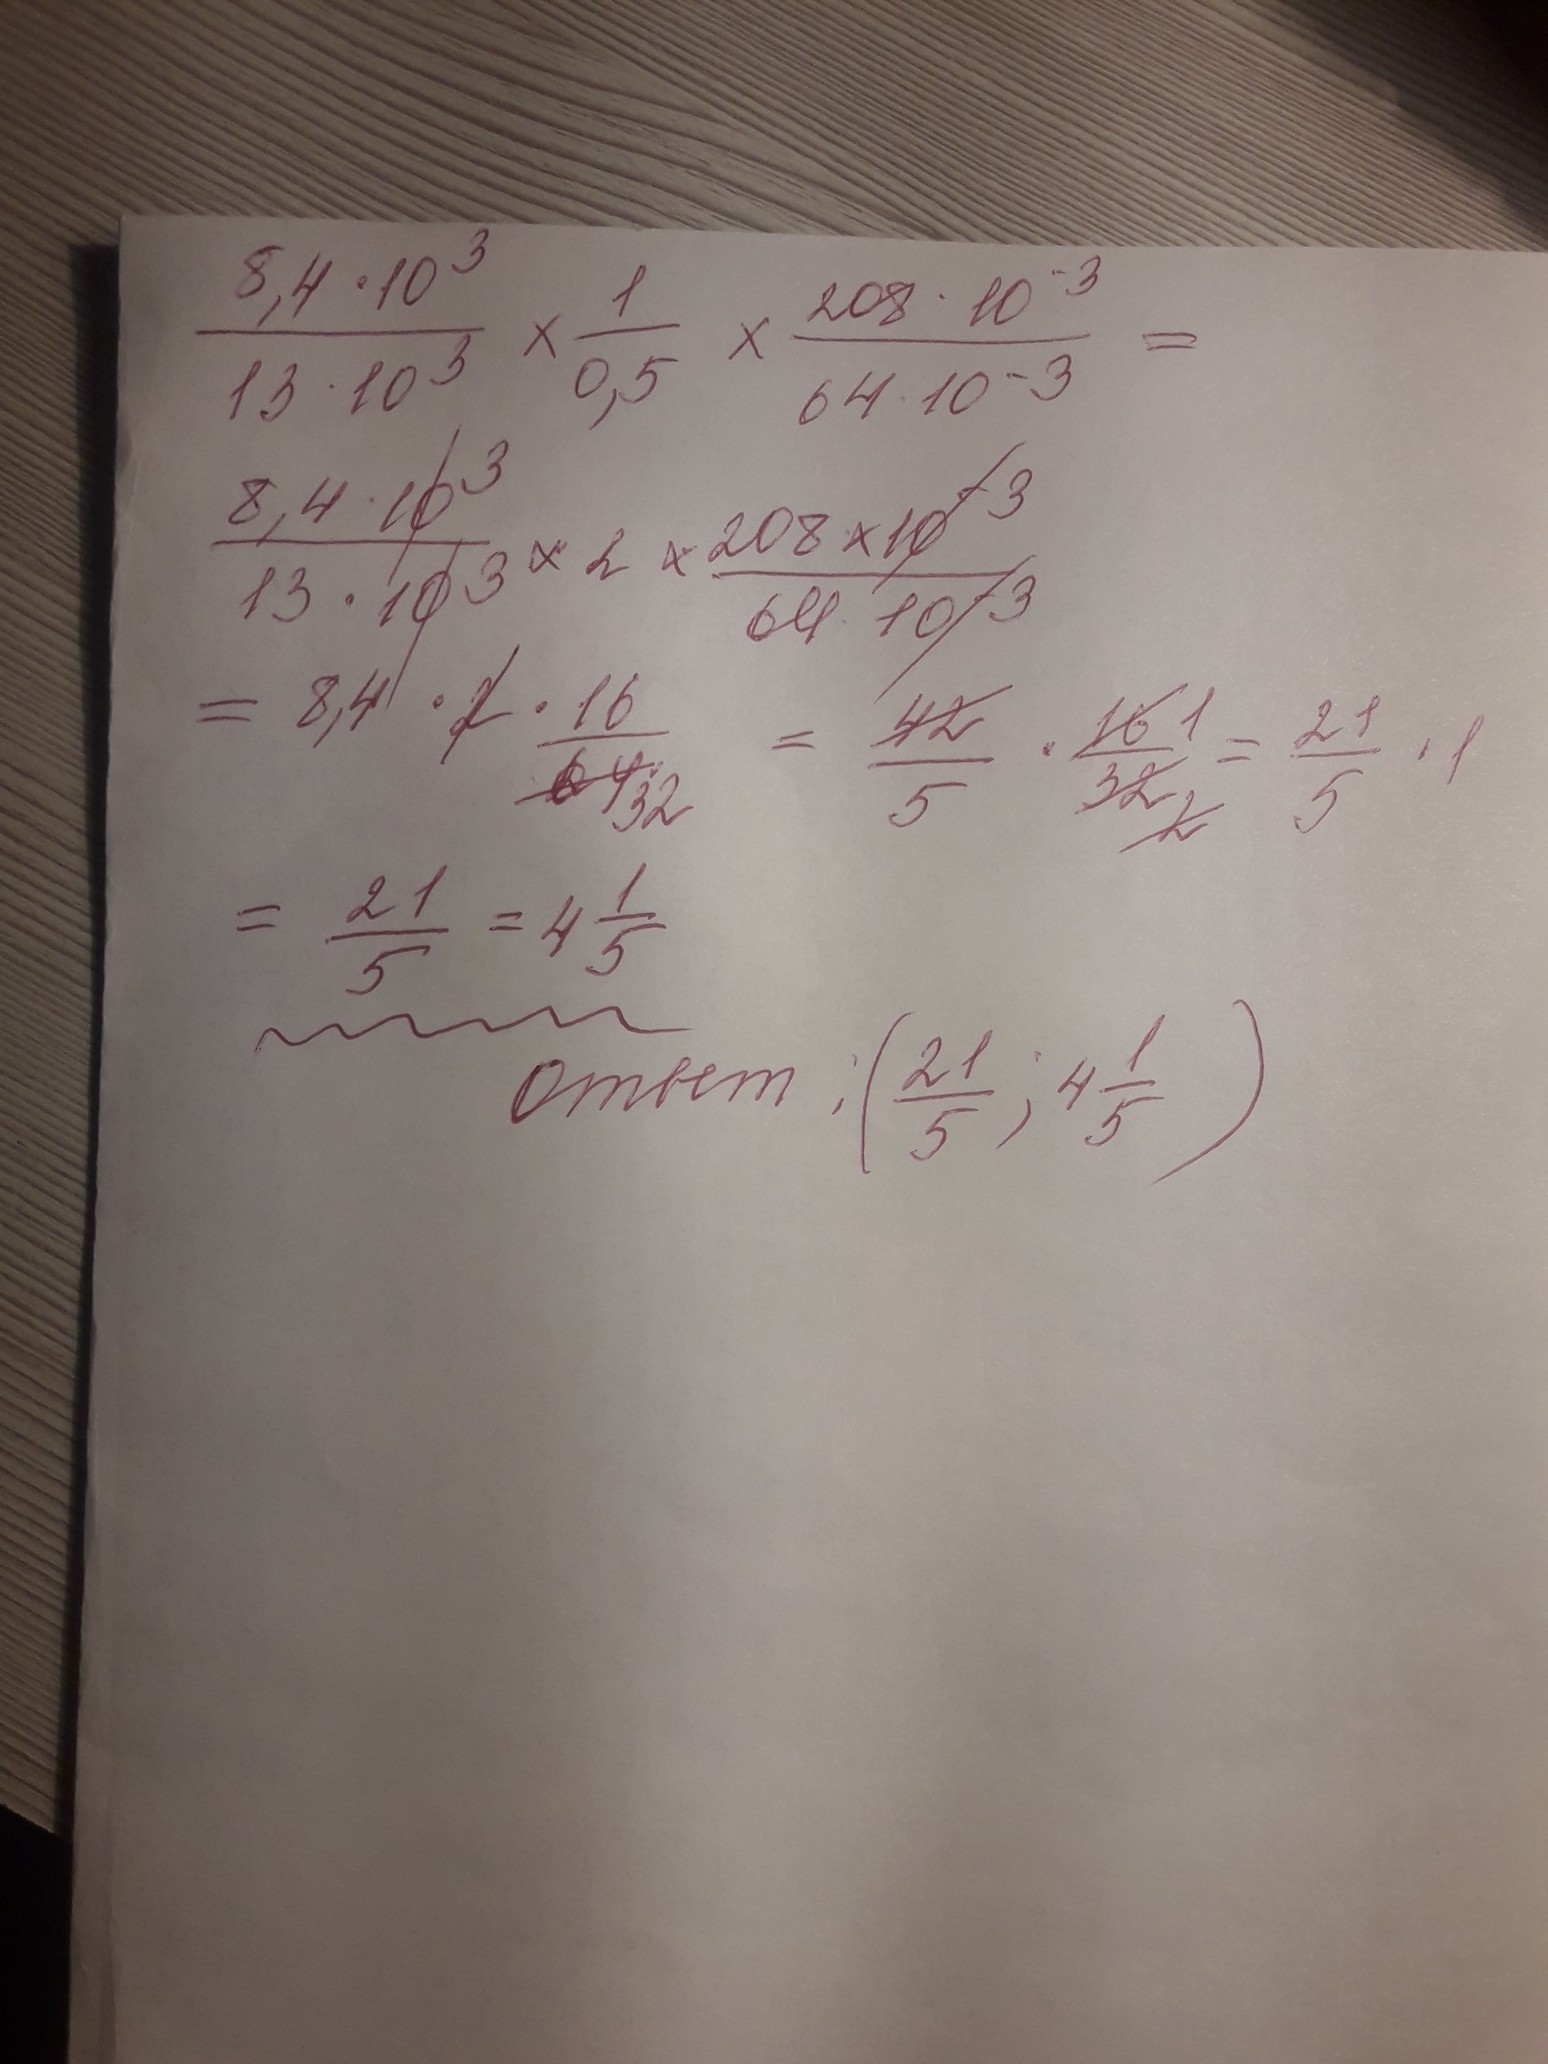 8,4 · 10³ / 13 · 10³ × 1 / 0,5 × 208 · 10⁻³ / 64 · 10⁻³ =
8,4 · 10³ / 13 · 10³ × 2 × 208 × 10⁻³ / 64 · 10⁻³
= 8,4 · 2 · 16 / 64 32 = 42 / 5 · 16 1 / 32 2 = 21 / 5 · 1
= 21 / 5 = 4 1/5
Ответ: (21/5; 4 1/5)